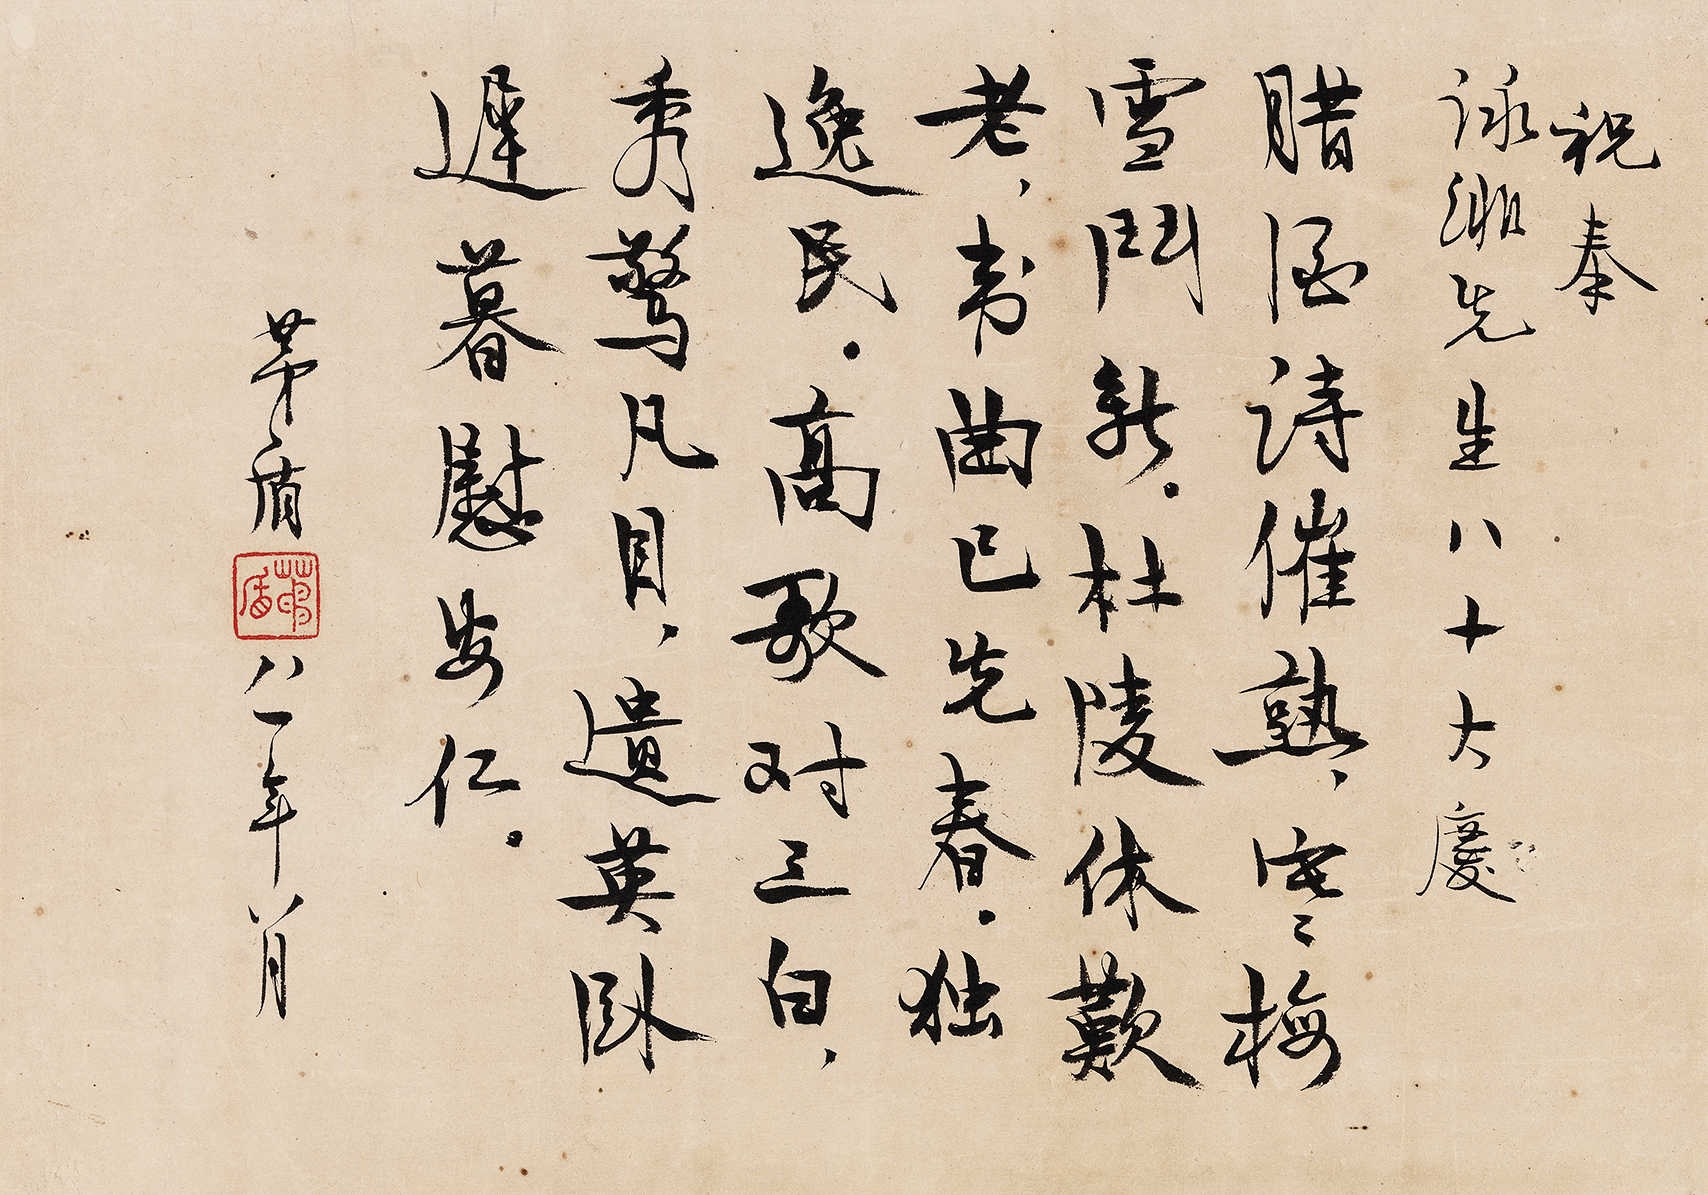 祝秦
詠緗先生八十大慶
腊酒詩催熟，寒梅
雪鬥新。杜陵休歎
老，韦曲已先春。独
逸民。高歌对三白，
秀驚凡目，遺英卧
遲暮慰安仁。
茅盾
茅盾
八一年八月